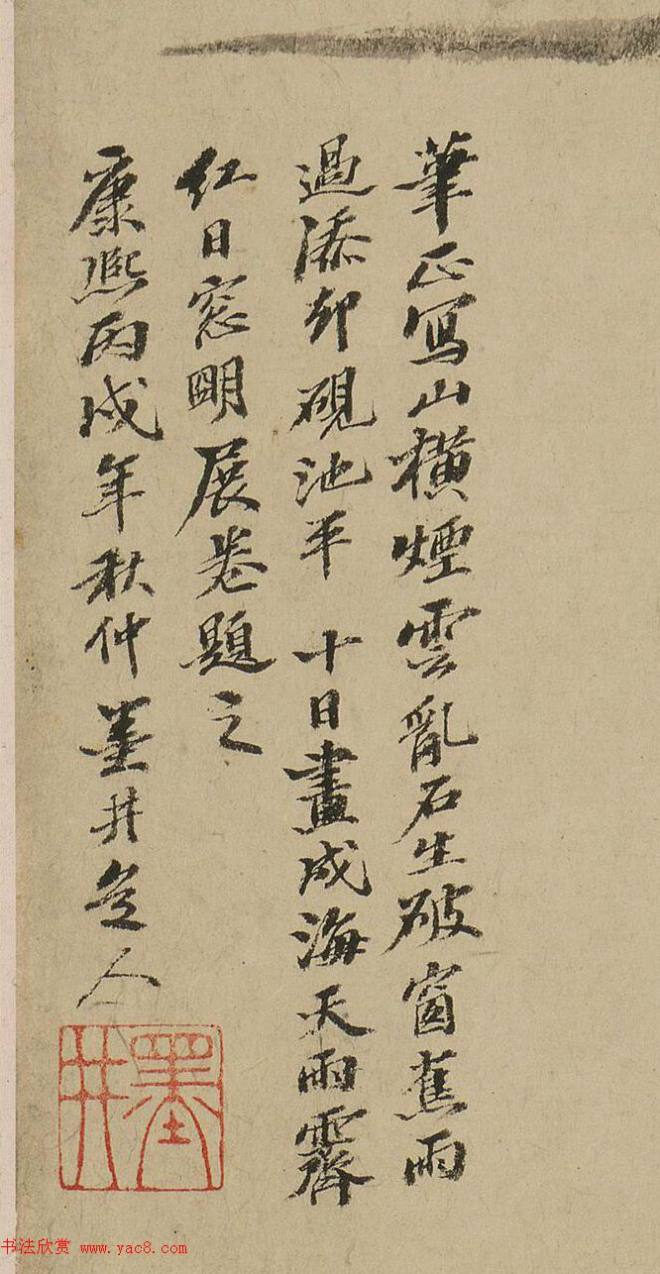 筆正寫山橫煙雲亂石生破窗蕉雨
過添却硯池平 十日畫成海天雨霽
紅日窓明展卷題之
康熙丙戌年秋仲墨井道人
墨井
书法欣赏 www.yac8.com